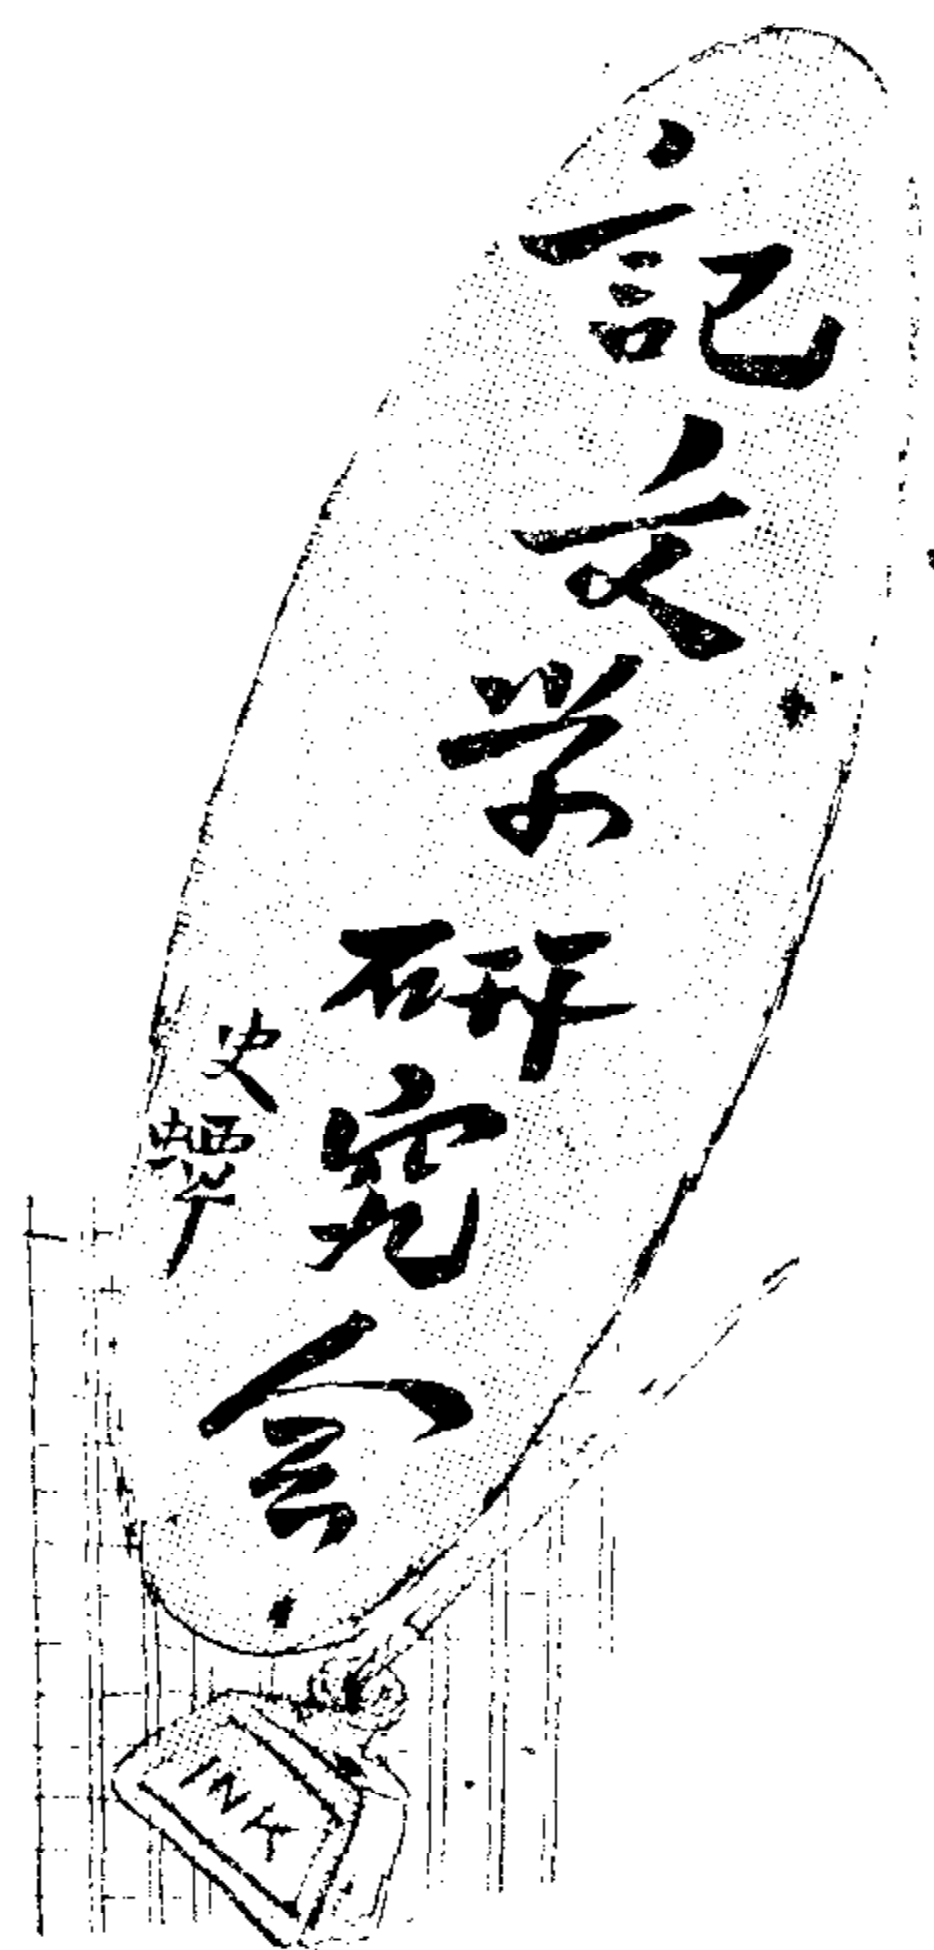 記文学研究会
史
INK